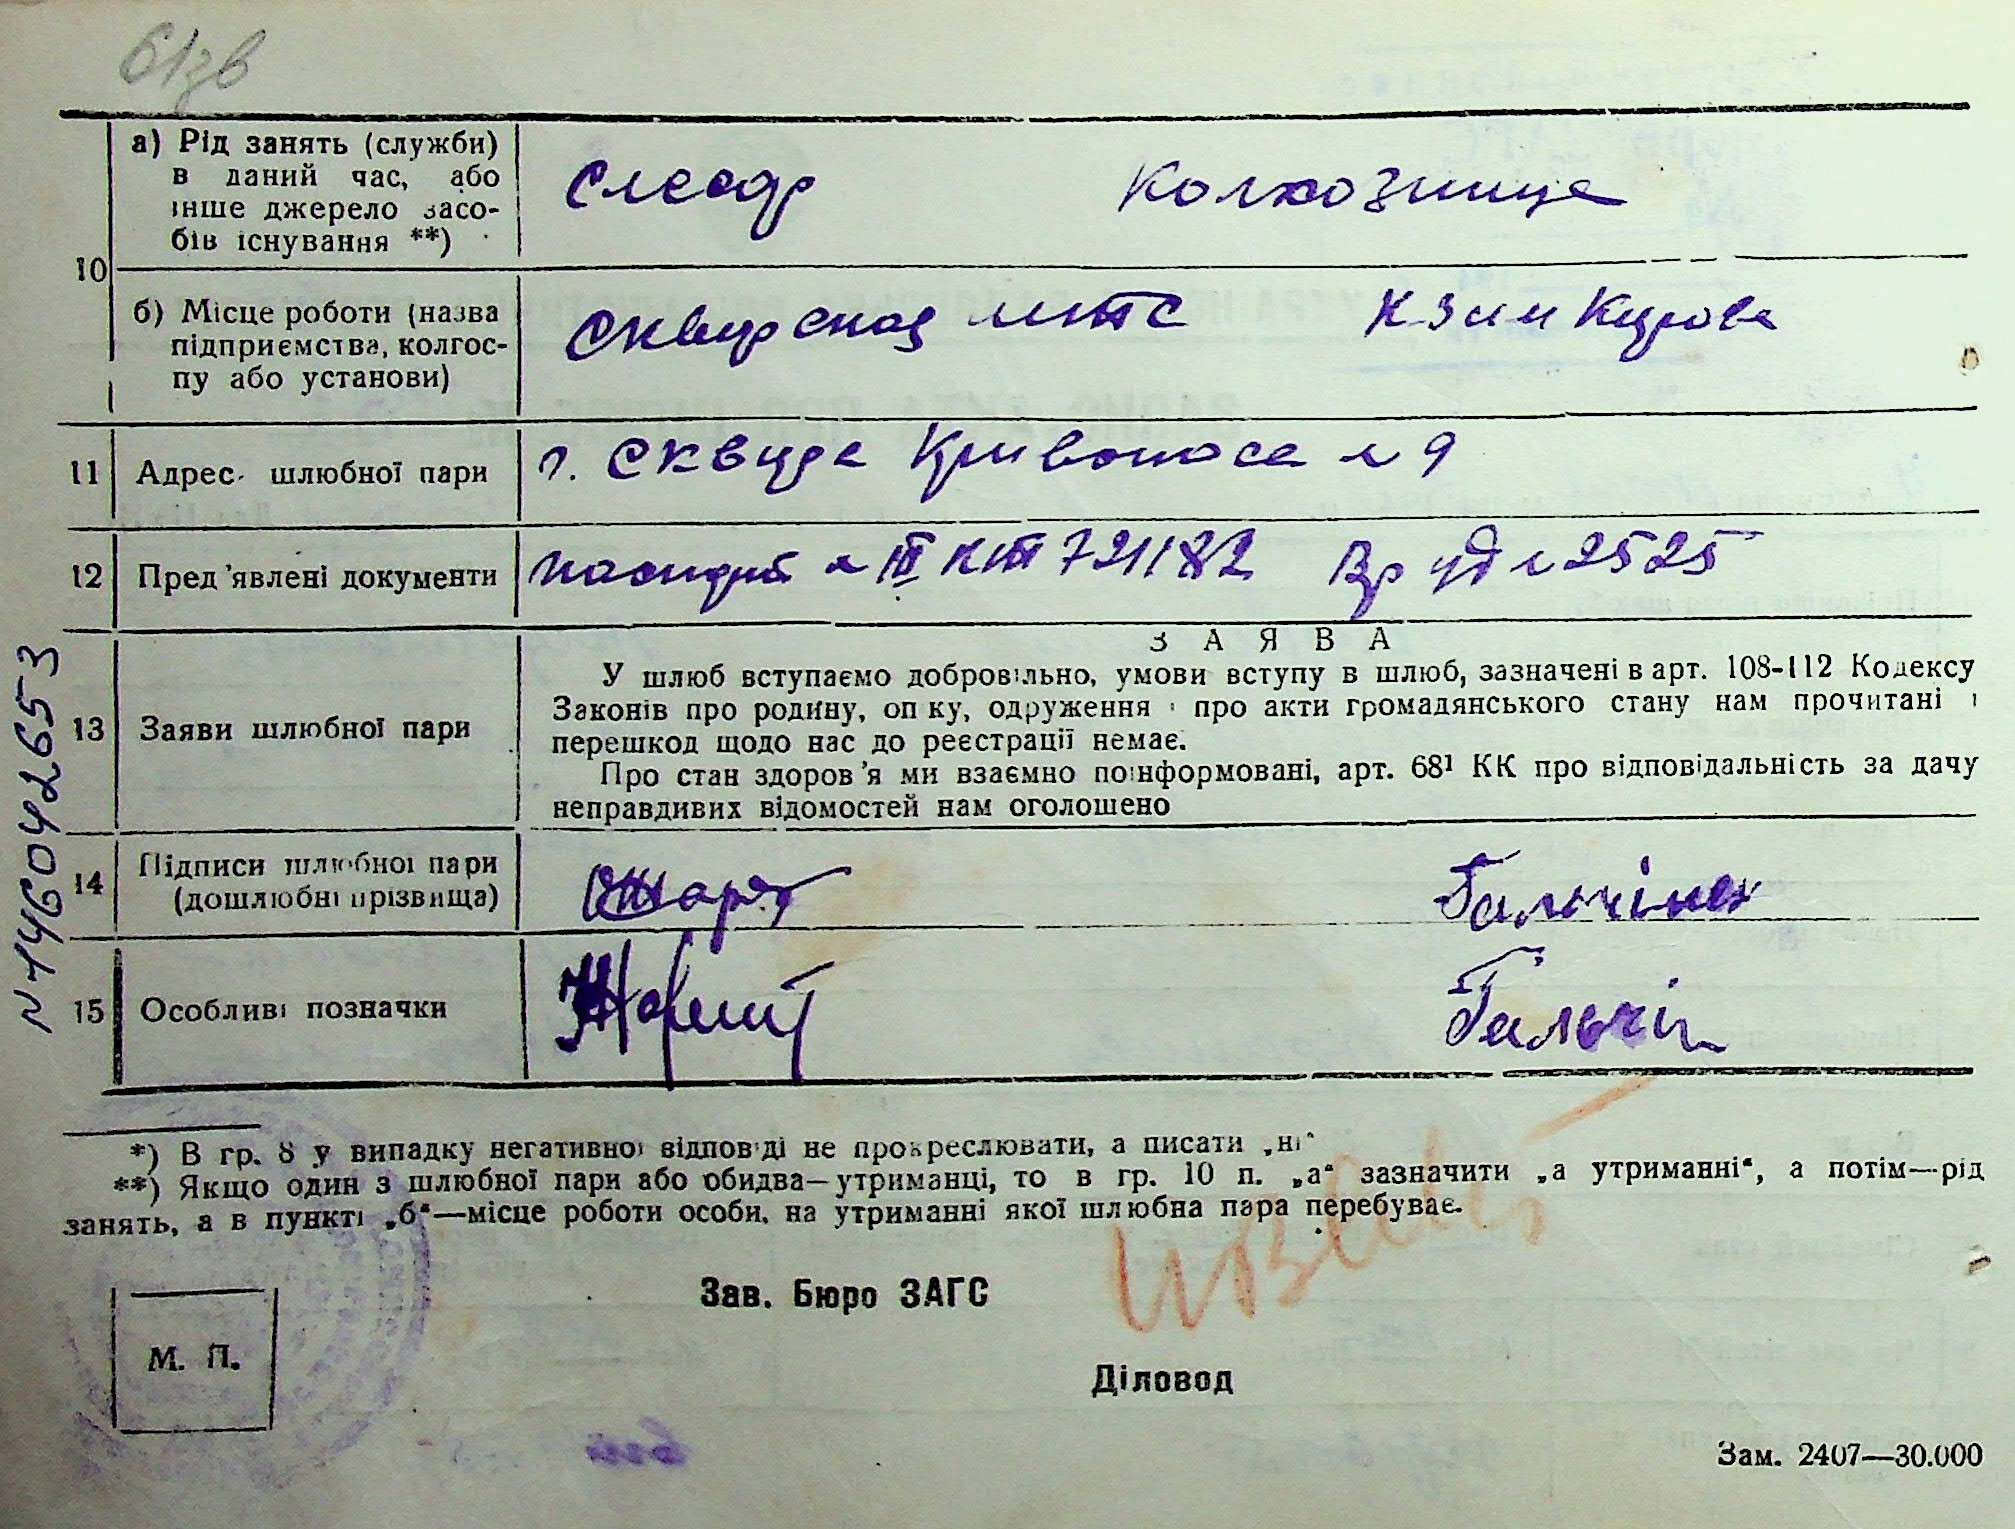 61зв
10
а) Рід занять (служби) в даний час, або інше джерело засобів існування **)
Слесар Колхозница
б) Місце роботи (назва підприємства, колгоспу або установи)
Сквирская мтс К-З им Кирова
11 Адрес шлюбної пари г. Сквира Кривоноса № 9
12 Пред'явлені документи паспорт № III КШ 721182 Вр уд № 2525
З А Я В А
13 Заяви шлюбної пари
У шлюб вступаємо добровільно, умови вступу в шлюб, зазначені в арт. 108-112 Кодексу
Законів про родину, опіку, одруження і про акти громадянського стану нам прочитані і
перешкод щодо нас до реєстрації немає.
Про стан здоров'я ми взаємно поінформовані, арт. 68¹ КК про відповідальність за дачу
неправдивих відомостей нам оголошено
14 Підписи шлюбної пари
(дошлюбні прізвища)
15 Особливі позначки
N 146042653
*) В гр. 8 у випадку негативної відповіді не прокреслювати, а писати „ні"
**) Якщо один з шлюбної пари або обидва—утриманці, то в гр. 10 п. „а" зазначити „а утриманні", а потім—рід
занять, а в пункті „б"—місце роботи особи, на утриманні якої шлюбна пара перебуває.
Зав. Бюро ЗАГС
М. П.
Діловод
Зам. 2407—30.000